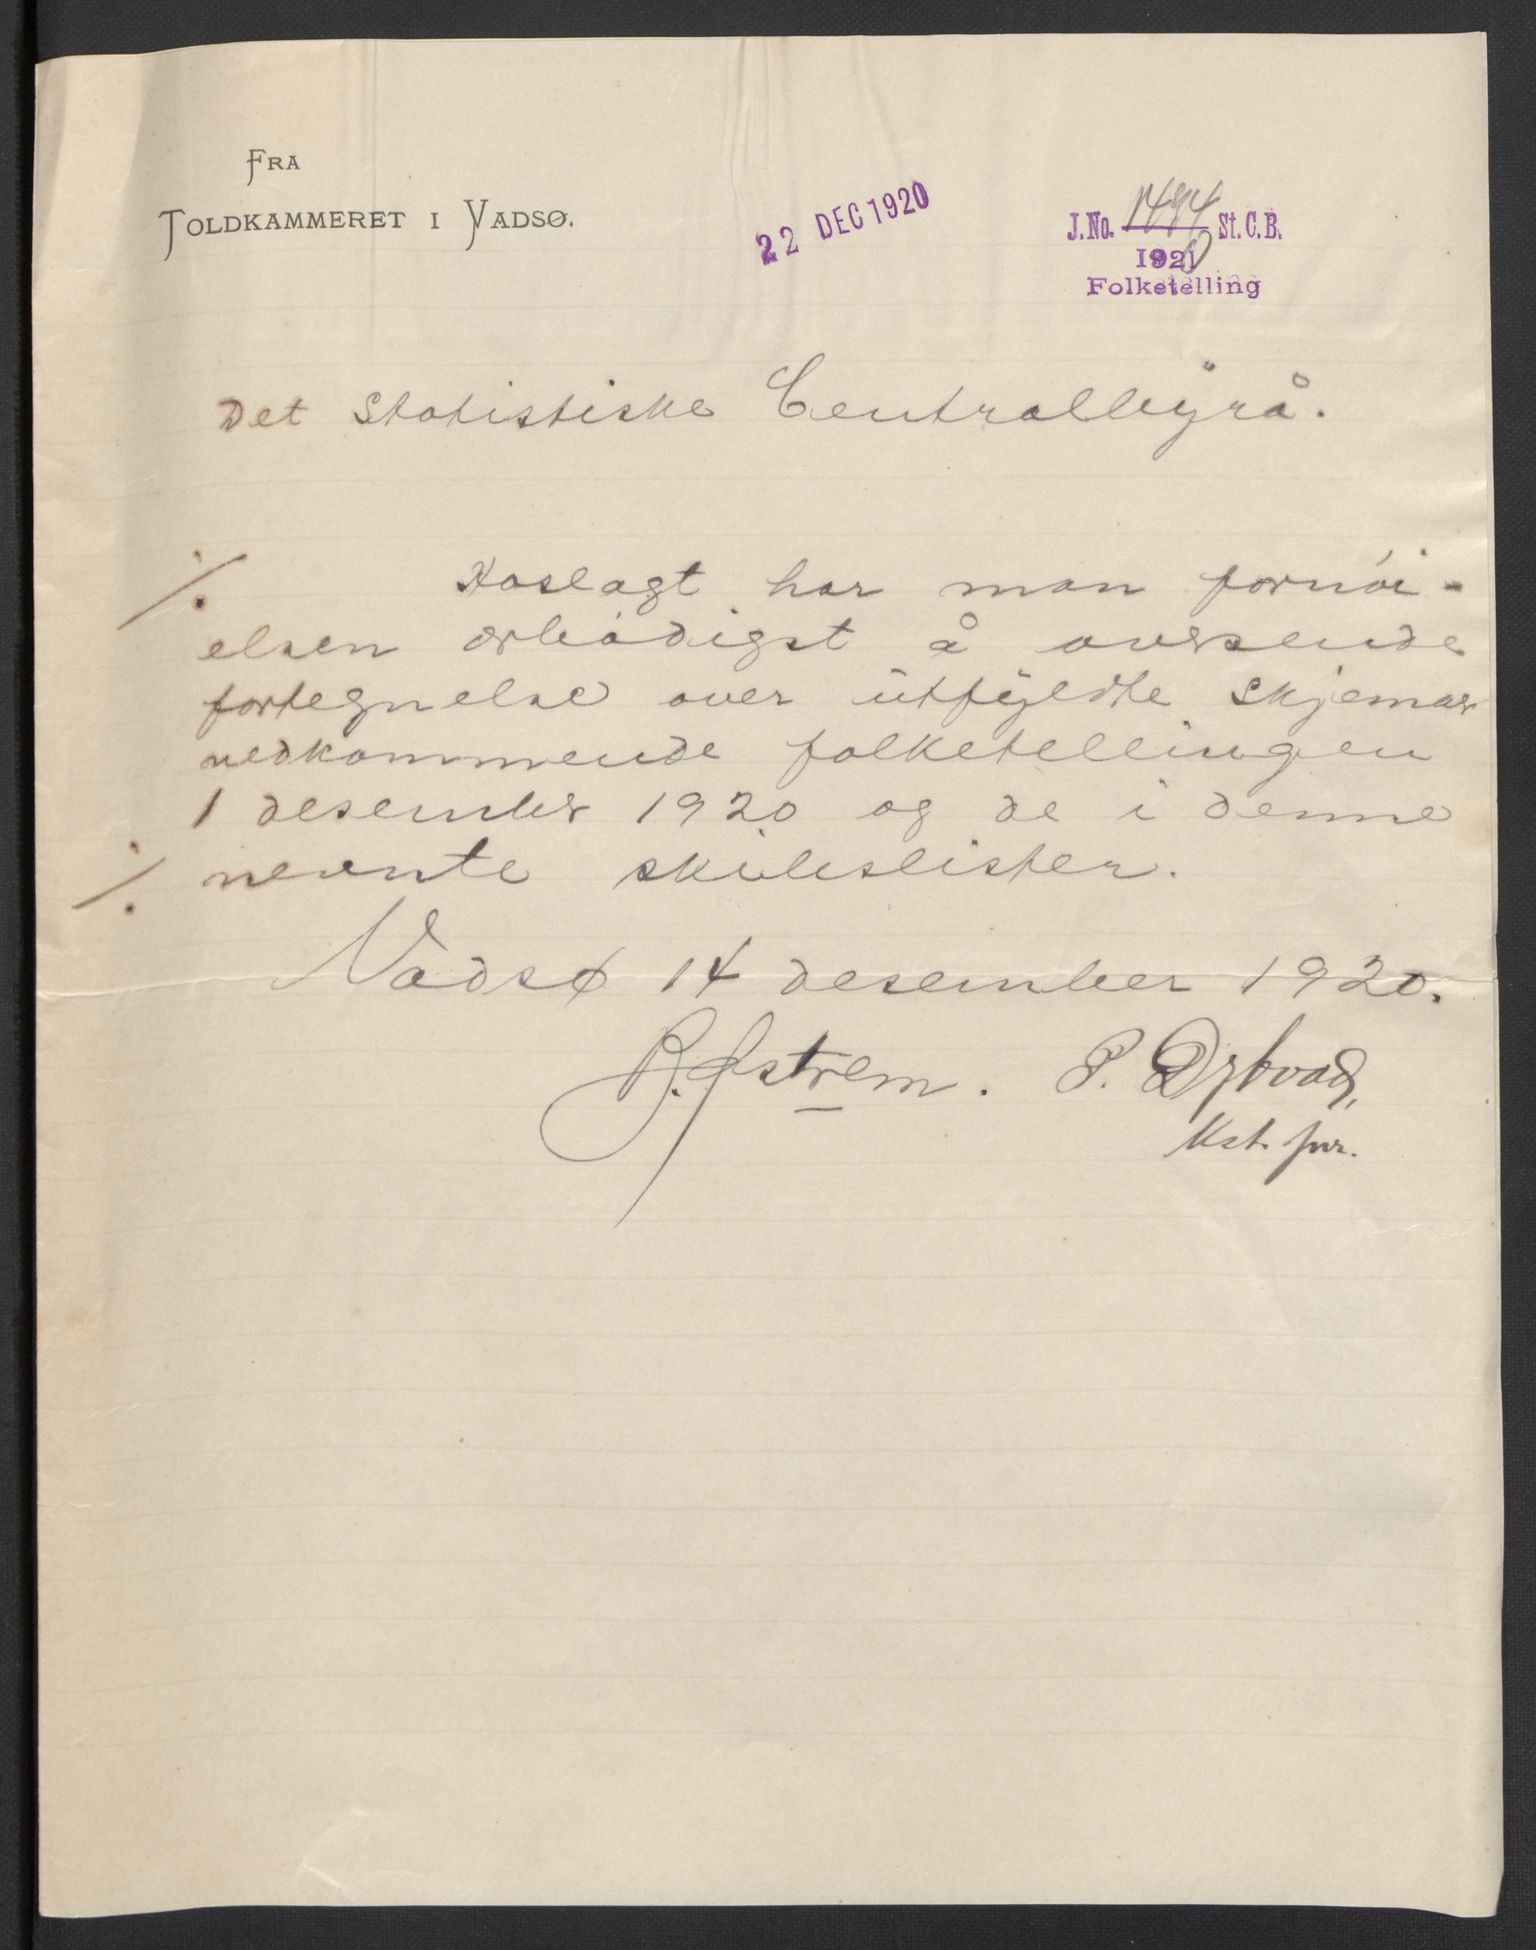 FRA
TOLDKAMMERET I VADSØ.
22 DEC 1920
J.No. 1494 St.C.B.
1920
Folketelling
Det Statistiske Centralbyrå.
% Hoslagt har man fornøi-
elsen ærbødigst å oversende
fortegnelse over utfyldte skjemaer
vedkommende folketellingen
1 desember 1920 og de i denne
% nevnte skibslister.
Vadsø 14 desember 1920.
P. Dybvad,
kst.